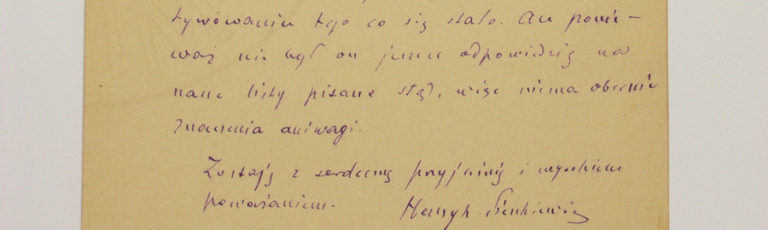 tywowania tego co się stało. Ale ponie-
waż nie był on jeszcze odpowiedzią na
nasze listy pisane stąd, więc niema obecnie
znaczenia ani wagi.
Zostaję z serdeczną przyjaźnią i wysokiem
poważaniem.
Henryk Sienkiewicz